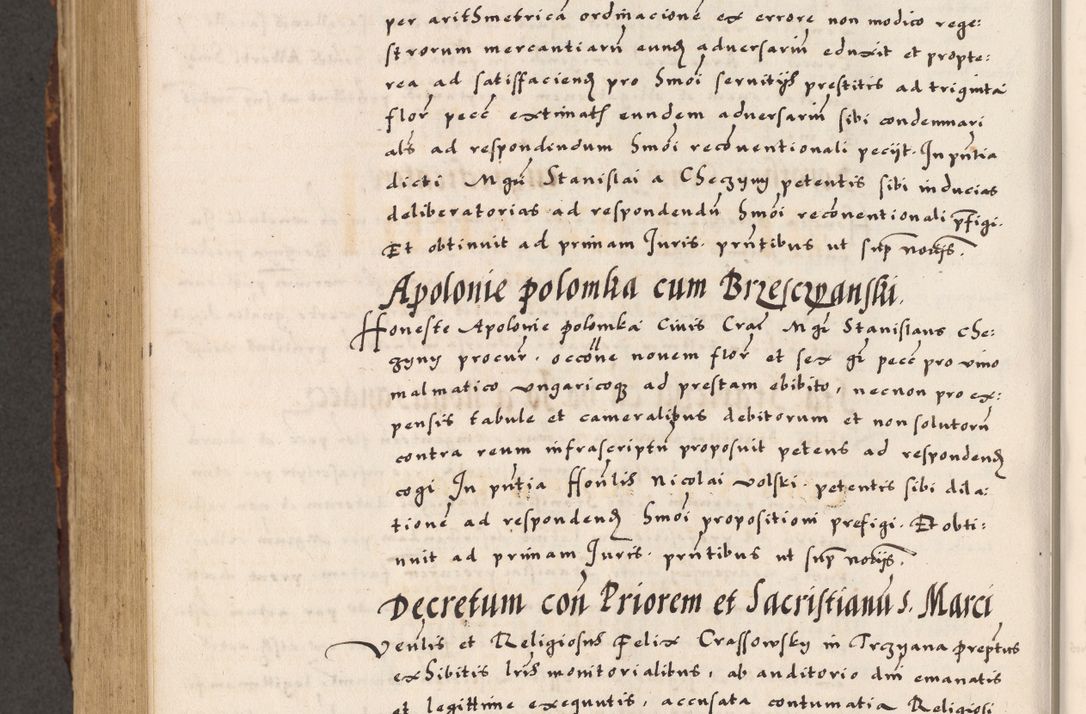 per arithmetricā ordinacionē ex errore non modico rege:
strorum mercantiarū eunḍ adversariū eduxit et propte:
rea ad satisfacienḍ pro hmōi servitijs prestitis ad triginta
flor̄ pecc̄ extimatꝭ eundem adversariū sibi condemnari
alš ad respondendum hmōi recōventionali peciit. In pn̄tia
dicti Mgr̄i Stanislai a Checzyny petentis sibi inducias
deliberatorias ad respondendū hmōi recōventionali p̄figi.
Et obtinuit ad primam Juris. prn̄tibus ut sup̄ notijs.
Apolonie polomka cum Brzesczyanski.
Honeste Apolonie polomka Civis Crac̄ Mgr̄ Stanislaus Che:
czyny procur̄. occōne novem flor̄ et sex gr̄ pecc̄ pro vino
malmatico ungaricoqꝫ ad prestam ebibito, necnon pro ex:
pensis tabule et cameralibus debitorum et non solutorū
contra reum infrascriptū proposuit petens ad respondenḍ
cogi In pn̄tia Hon̄lis Nicolai Volski. petentis sibi dila:
tionē ad respondenḍ hmōi propositioni prefigi. Et obti:
nuit ad primam Juris. prn̄tibus ut sup̄ notijs.
Decretum con̄ Priorem et Sacristianū S. Marci
Ven̄lis et Religiosus Felix Crassowsky in Trczyana prep̄tus
exhibitis lrīs monitorialibus, ab auditorio dn̄i emanatis
et legittime exequutis, accusata contumatia Religiosi